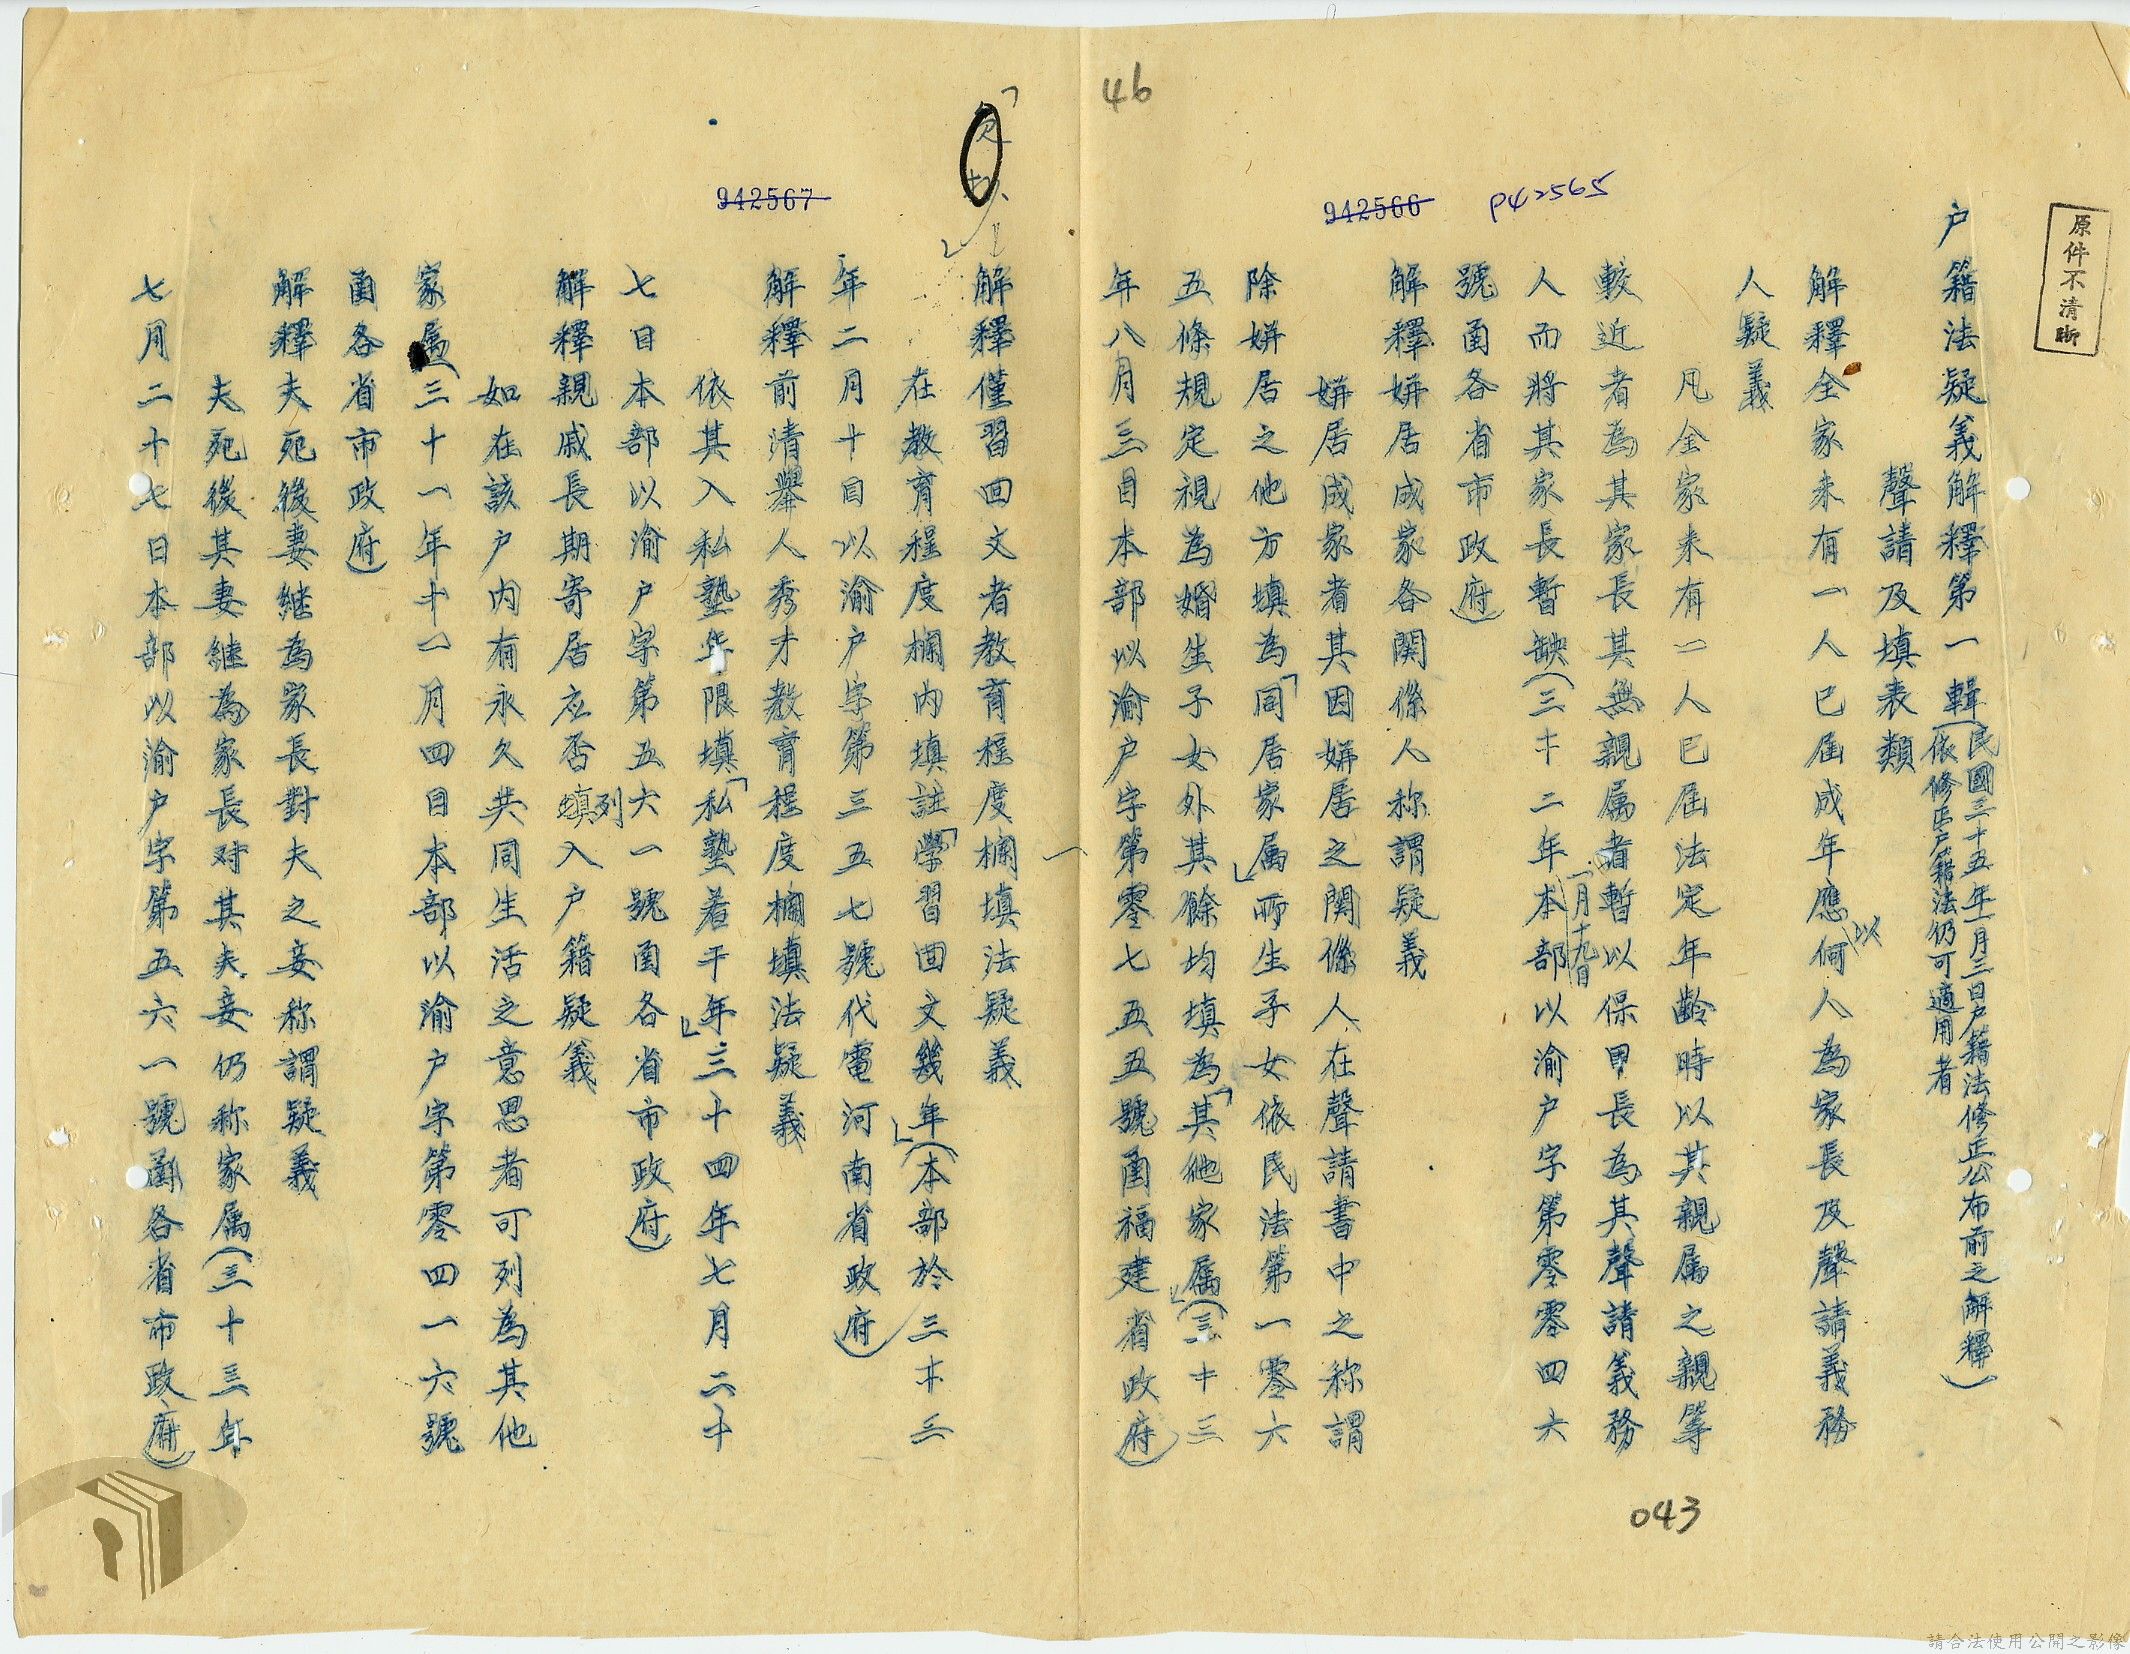 原件不清晰
46
942566
P42565
户籍法疑義解釋第一輯(民國三十五年一月三日户籍法修正公布前之解釋)
依修正户籍法仍可適用者
聲請及填表類
解釋全家未有一人已屆成年應以何人為家長及聲請義務
人疑義
凡全家未有一人已屆法定年齡時以其親属之親等
較近者為其家長其無親属者暫以保甲長為其聲請義務
人而將其家長暫缺(三十二年一月十九日本部以渝户字第零零四六
號函各省市政府)
解釋姘居成家各関係人称謂疑義
姘居成家者其因姘居之関係人在聲請書中之称謂
除姘居之他方填為「同居家属」所生子女依民法第一零六
五條規定視為婚生子女外其餘均填為「其他家属」(三十三
年八月三日本部以渝户字第零七五五號函福建省政府)
043
一
942567
解釋僅習回文者教育程度欄填法疑義
在教育程度欄内填註「學習回文幾年」(本部於三十三
年二月十日以渝户字第三五七號代電河南省政府)
解釋前清舉人秀才教育程度欄填法疑義
依其入私塾年限填「私塾若干年」三十四年七月二十
七日本部以渝户字第五六一號函各省市政府)
解釋親戚長期寄居应否填列入户籍疑義
如在該户内有永久共同生活之意思者可列為其他
家属(三十一年十一月四日本部以渝户字第零四一六號
函各省市政府)
解釋夫死後妻继為家長對夫之妾称謂疑義
夫死後其妻继為家長对其夫妾仍称家属(三十三年
七月二十七日本部以渝户字第五六一號函各省市政府)
請合法使用公開之影像